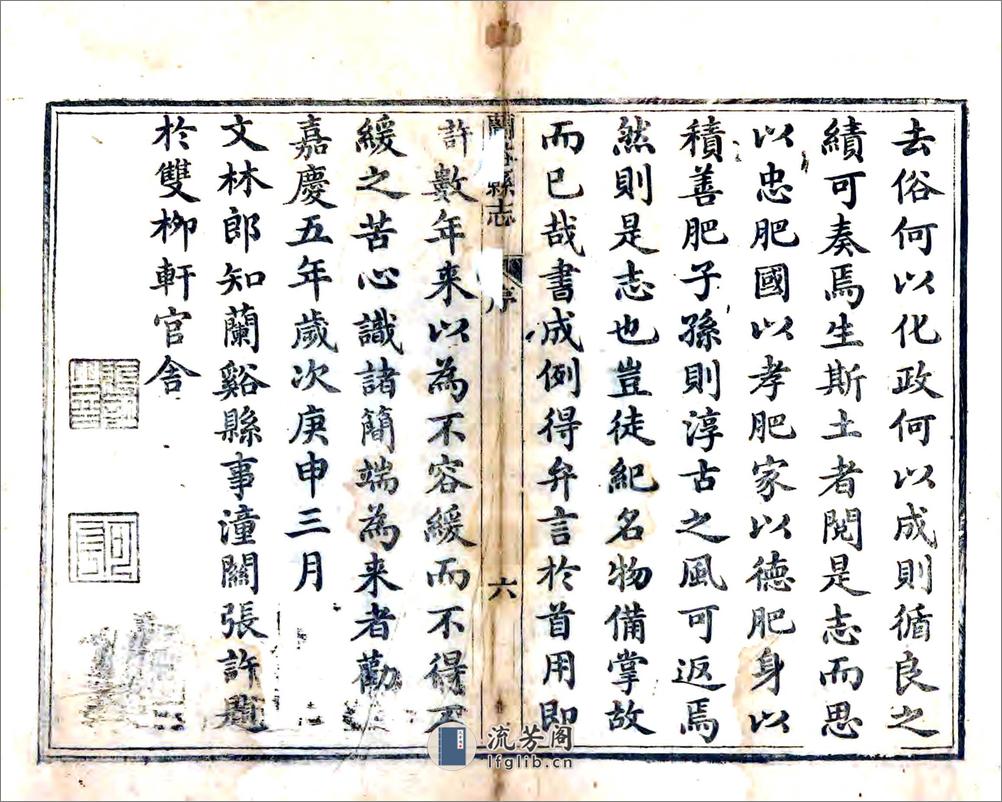 去俗何以化政何以成則循良之
績可奏焉生斯土者閱是志而思
以忠肥國以孝肥家以德肥身以
積善肥子孫則淳古之風可返焉
然則是志也豈徒紀名物備掌故
而已哉書成例得弁言於首用即
蘭谿縣志
序
六
許數年来以為不容緩而不得不
緩之苦心識諸簡端為来者勸
嘉慶五年歲次庚申三月
文林郎知蘭谿縣事潼關張許題
於雙柳軒官舍
流芳阁
lfglib.cn